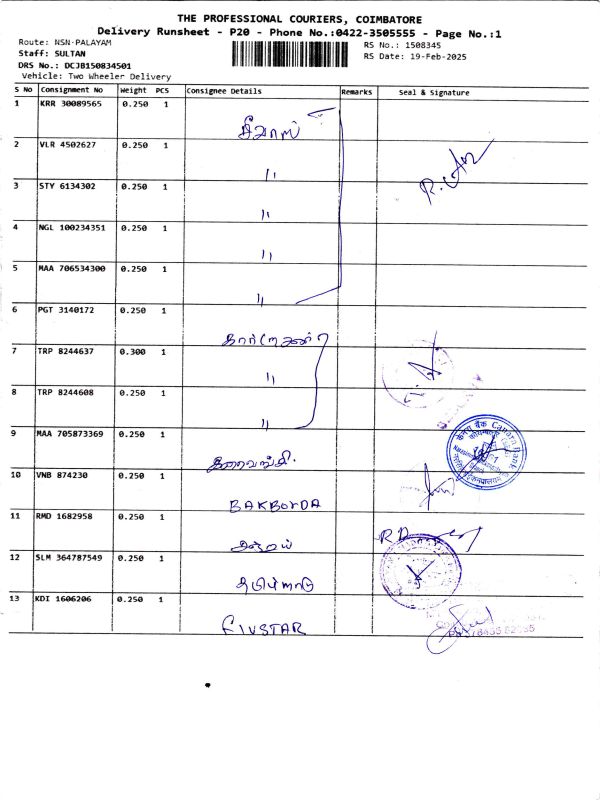 THE PROFESSIONAL COURIERS, COIMBATORE
Delivery Runsheet - P20 - Phone No.:0422-3505555 - Page No.:1
Route: NSN-PALAYAM RS No.: 1508345
Staff: SULTAN RS Date: 19-Feb-2025
DRS No.: DCJB150834501
Vehicle: Two Wheeler Delivery
S No Consignment No Weight PCS Consignee Details Remarks Seal & Signature
1 KRR 30089565 0.250 1
2 VLR 4502627 0.250 1 "
3 STY 6134302 0.250 1 "
4 NGL 100234351 0.250 1 "
5 MAA 706534300 0.250 1 "
6 PGT 3140172 0.250 1
7 TRP 8244637 0.300 1 "
8 TRP 8244608 0.250 1 "
9 MAA 705873369 0.250 1 Canara Bank
10 VNB 874230 0.250 1 BAKBOYDA
11 RMD 1682958 0.250 1
12 SLM 364787549 0.250 1
13 KDI 1606206 0.250 1 FIVSTAR